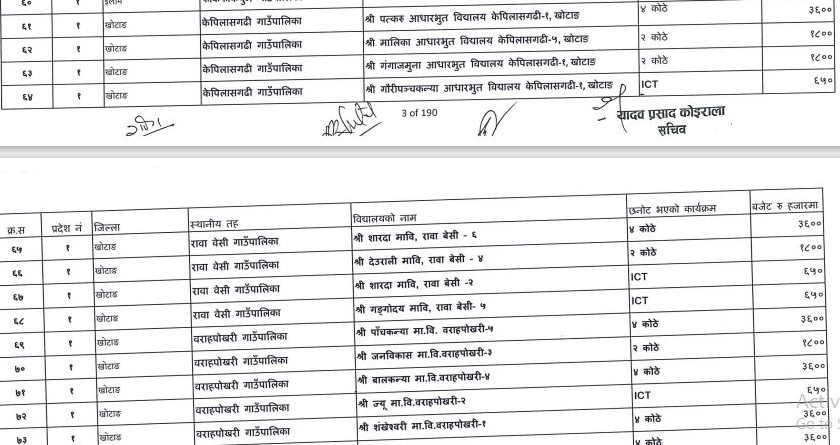 ६० १ इलाम
६१ १ खोटाङ केपिलासगढी गाउँपालिका श्री पत्करु आधारभुत विद्यालय केपिलासगढी-१, खोटाङ ४ कोठे ३६००
६२ १ खोटाङ केपिलासगढी गाउँपालिका श्री मालिका आधारभुत विद्यालय केपिलासगढी-५, खोटाङ २ कोठे १८००
६३ १ खोटाङ केपिलासगढी गाउँपालिका श्री गंगाजमुना आधारभुत विद्यालय केपिलासगढी-१, खोटाङ २ कोठे १८००
६४ १ खोटाङ केपिलासगढी गाउँपालिका श्री गौरीपञ्चकन्या आधारभुत विद्यालय केपिलासगढी-१, खोटाङ ICT ६५०
3 of 190
यादव प्रसाद कोइराला
सचिव
क्र.स प्रदेश नं जिल्ला स्थानीय तह विद्यालयको नाम छनोट भएको कार्यक्रम बजेट रु हजारमा
६५ १ खोटाङ रावा वेसी गाउँपालिका श्री शारदा मावि, रावा बेसी - ६ ४ कोठे ३६००
६६ १ खोटाङ रावा वेसी गाउँपालिका श्री देउराली मावि, रावा बेसी - ४ २ कोठे १८००
६७ १ खोटाङ रावा वेसी गाउँपालिका श्री शारदा मावि, रावा बेसी -२ ICT ६५०
६८ १ खोटाङ रावा वेसी गाउँपालिका श्री गङ्गोदय मावि, रावा बेसी- ५ ICT ६५०
६९ १ खोटाङ वराहपोखरी गाउँपालिका श्री पाँचकन्या मा.वि. वराहपोखरी-५ ४ कोठे ३६००
७० १ खोटाङ वराहपोखरी गाउँपालिका श्री जनविकास मा.वि.वराहपोखरी-३ २ कोठे १८००
७१ १ खोटाङ वराहपोखरी गाउँपालिका श्री बालकन्या मा.वि.वराहपोखरी-४ ४ कोठे ३६००
७२ १ खोटाङ वराहपोखरी गाउँपालिका श्री ज्यू मा.वि.वराहपोखरी-२ ICT ६५०
७३ १ खोटाङ वराहपोखरी गाउँपालिका श्री शंखेश्वरी मा.वि.वराहपोखरी-१ ४ कोठे ३६००
४ कोठे ३६००
Activ
Go to